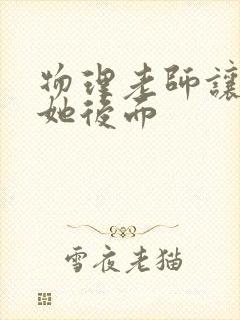 物理老師讓
她後面
雪夜老猫